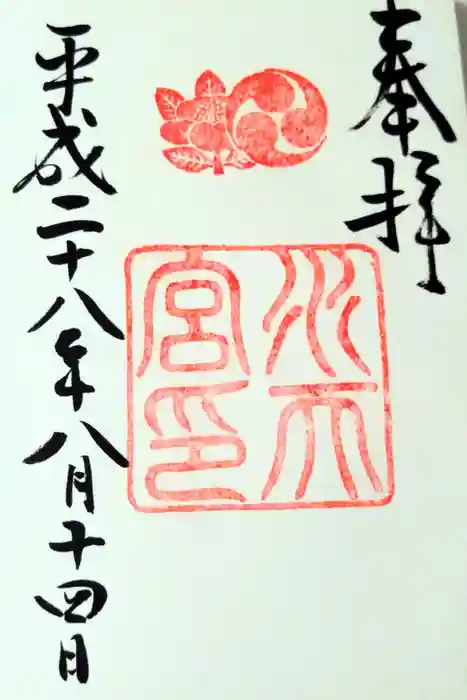 奉拝
水天宮印
平成二十八年八月十四日